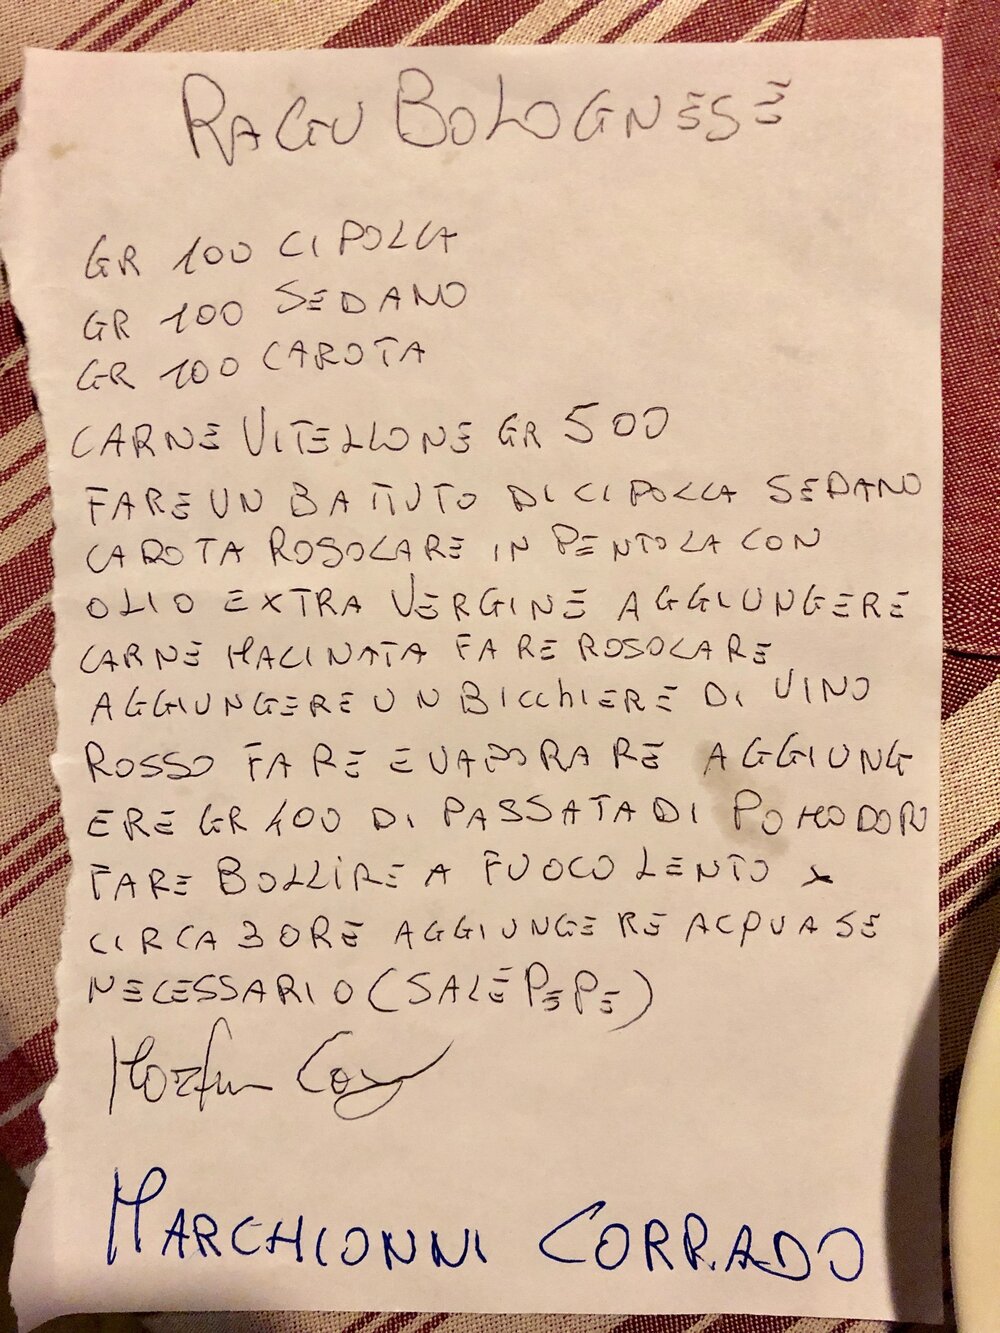 RAGU BOLOGNESE
GR 100 CIPOLLA
GR 100 SEDANO
GR 100 CAROTA
CARNE VITELLONE GR 500
FARE UN BATTUTO DI CIPOLLA SEDANO
CAROTA ROSOLARE IN PENTOLA CON
OLIO EXTRA VERGINE AGGIUNGERE
CARNE MACINATA FARE ROSOLARE
AGGIUNGERE UN BICCHIERE DI VINO
ROSSO FARE EVAPORARE AGGIUNG
ERE GR 100 DI PASSATA DI POMODORO
FARE BOLLIRE A FUOCO LENTO x
CIRCA 3 ORE AGGIUNGERE ACQUA SE
NECESSARIO (SALE PEPE)
MARCHIONNI CORRADO